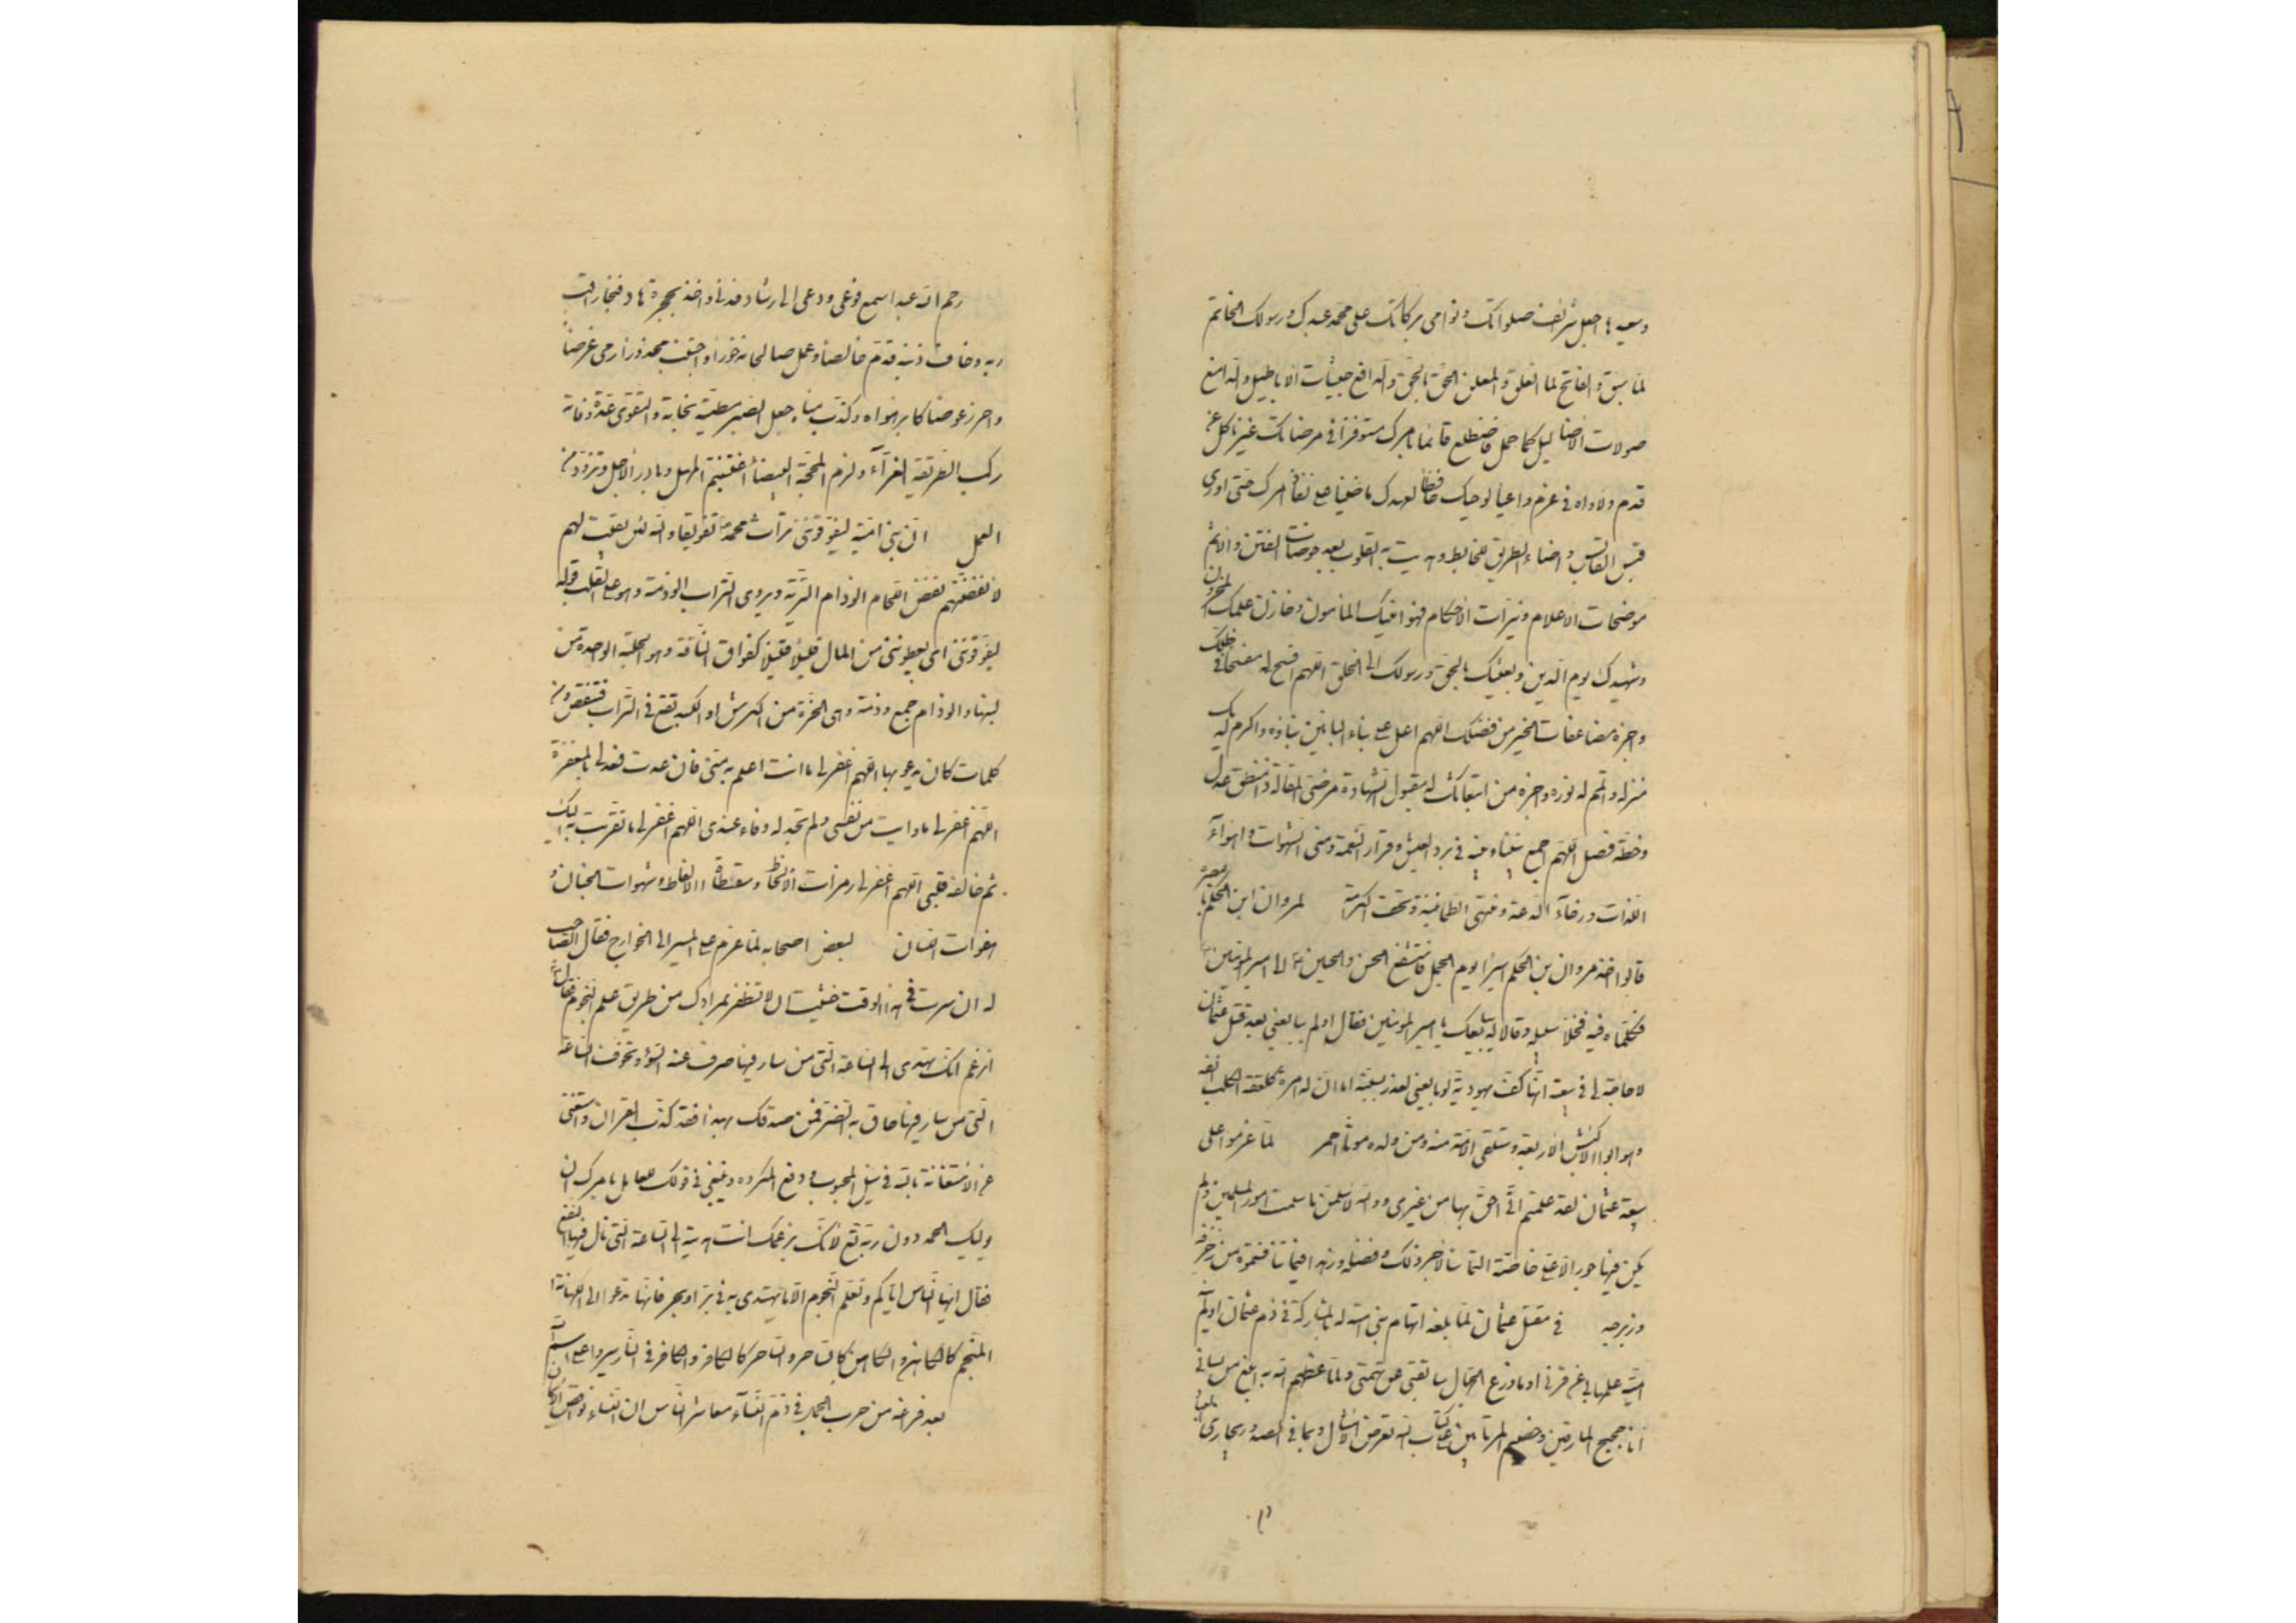 وسعيدها اجعل شرائف صلواتك ونوامى بركاتك على محمد عبدك ورسولك الخاتم
لما سبق والفاتح لما انغلق والمعلن الحق بالحق والدافع جيشات الاباطيل والدامغ
صولات الاضاليل كما حمل فاضطلع قائما بامرك مستوفزا فى مرضاتك غير ناكل عن
قدم ولا واه فى عزم واعيا لوحيك حافظا لعهدك ماضيا على نفاذ امرك حتى اورى
قبس القابس واضاء الطريق للخابط وهديت به القلوب بعد خوضات الفتن والاثم
موضحات الاعلام ونيرات الاحكام فهو امينك المامون وخازن علمك المخزون
وشهيدك يوم الدين وبعيثك بالحق ورسولك الى الخلق اللهم افسح له مفسحا فى ظلك
واجزه مضاعفات الخير من فضلك اللهم اعل على بناء البانين بناؤه واكرم لديك
منزله واتمم له نوره واجزه من ابتعاثك له مقبول الشهادة مرضى المقالة ذا منطق عدل
وخطة فصل اللهم اجمع بيننا وبينه فى برد العيش وقرار النعمة ومنى الشهوات واهوآء
اللذات ورخآء الدعة ومنتهى الطمانينة وتحف الكرامة لمروان ابن الحكم بالبصرة
قالوا اخذ مروان بن الحكم اسيرا يوم الجمل فاستشفع الحسن والحسين ع الى امير المؤمنين
فكلماه فيه فخلا سبيله وقالا له يبايعك يا امير المؤمنين فقال اولم يبايعنى بعد قتل عثمان
لا حاجة لى فى بيعته انها كف يهودية لو بايعنى لغدر بسبته اما ان له امرة كلعقة الكلب انفه
وهو ابو الاكبش الاربعة وستلقى الامة منه ومن ولده موتا احمر لما عزموا على
بيعة عثمان لقد علمتم انى احق بها من غيرى ووالله لاسلمن ما سلمت امور المسلمين ولم
يكن فيها جور الا على خاصة التماسا لاجر ذلك وفضله وزهدا فيما تنافستموه من زخرفه
وزبرجه فى مقتل عثمان لما بلغه اتهام بنى امية له بالمشاركة فى دم عثمان اولم
امية علمها بى عن قرفى اوما وزع الجهال سابقتى عن تهمتى ولما وعظهم الله به ابلغ من لسانى
انا حجيج المارقين وخصيم المرتابين على كتاب الله تعرض الامثال وبما فى الصدور يجازى العباد
رحم الله عبدا سمع فوعى ودعى الى رشاد فدنى واخذ بحجزة هاد فنجا راقب
ربه وخاف ذنبه قدم خالصا وعمل صالحا مذخورا واجتنب محذورا رمى غرضا
واحرز عوضا كابر هواه وكذب مناه جعل الصبر مطية نجاته والتقوى عدة وفاته
ركب الطريقة الغرآء ولزم المحجة البيضآء اغتنم المهل وبادر الاجل وتزود من
العمل ان بنى امية ليفوقوننى تراث محمد تفويقا والله لئن بقيت لهم
لانفضنهم نفض اللحام الوذام التربة ويروى التراب الوذمة وهو على القلب قوله
ليفوقوننى اى يعطوننى من المال قليلا قليلا كفواق الناقة وهو الحلبة الواحدة من
لبنها والوذام جمع وذمة وهى الحزة من الكرش او الكبد تقع فى التراب فتنفض من
كلمات كان يدعو بها اللهم اغفر لى ما انت اعلم به منى فان عدت فعد لى بالمغفرة
اللهم اغفر لى ما وايت من نفسى ولم تجد له وفاء عندى اللهم اغفر لى ما تقربت به اليك
ثم خالفه قلبى اللهم اغفر لى رمزات الالحاظ وسقطات الالفاظ وشهوات الجنان و
هفوات اللسان لبعض اصحابه لما عزم على المسير الى الخوارج فقال الصاحب
له ان سرت فى هذا الوقت خشيت ان لا تظفر بمرادك من طريق علم النجوم فقال ع
اتزعم انك تهدى الى الساعة التى من سار فيها صرف عنه السوء وتخوف الساعة
التى من سار فيها حاق به الضر فمن صدقك بهذا فقد كذب القران واستغنى
عن الاستعانة بالله فى نيل المحبوب ودفع المكروه وتبتغى فى قولك للعامل بامرك ان
يوليك الحمد دون ربه تع لانك بزعمك انت هديته الى الساعة التى نال فيها النفع
فقال ايها الناس اياكم وتعلم النجوم الا ما يهتدى به فى بر او بحر فانها تدعوا الى الكهانة
المنجم كالكاهن والكاهن كالساحر والساحر كالكافر والكافر فى النار سيروا على اسم الله
بعد فراغه من حرب الجمل فى ذم النسآء معاشر الناس ان النساء نواقص الايمان